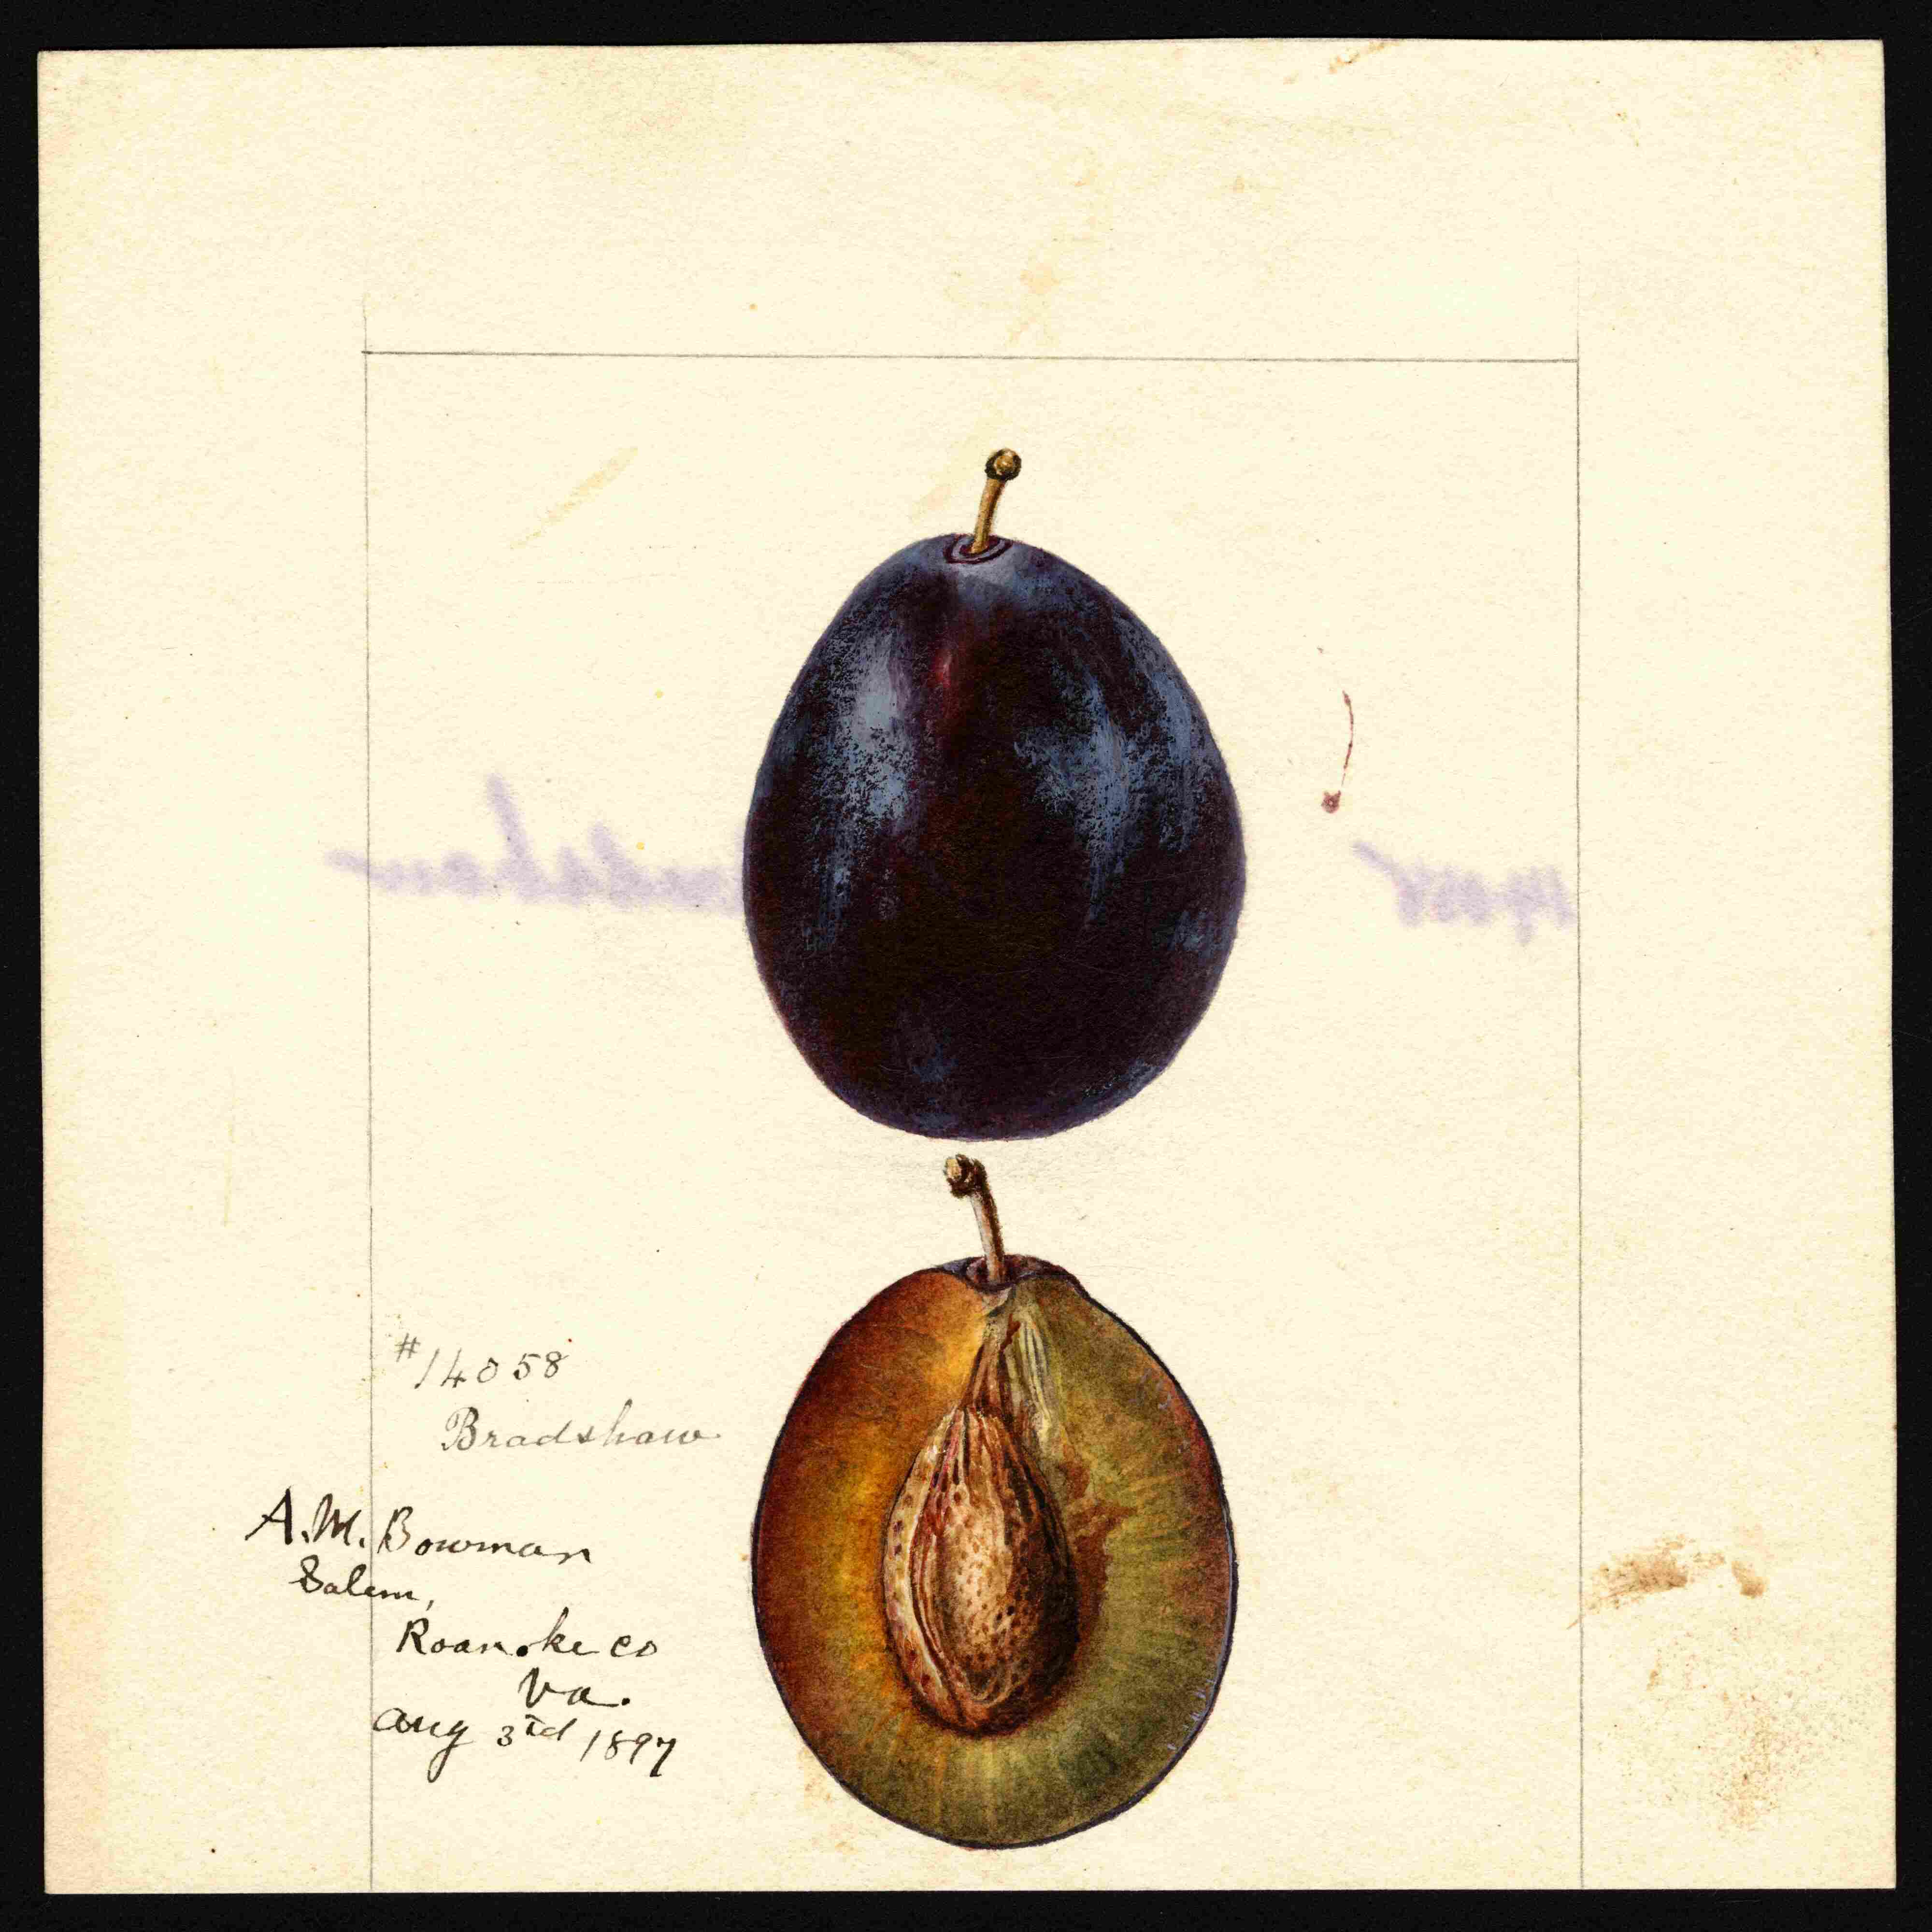 #14058
Bradshaw
A.M. Bowman
Salem,
Roanoke co
Va.
Aug 3rd 1897